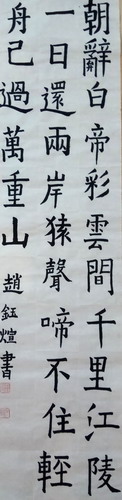 朝辭白帝彩雲間千里江陵
一日還兩岸猿聲啼不住輕
舟已過萬重山
趙鈺煊書